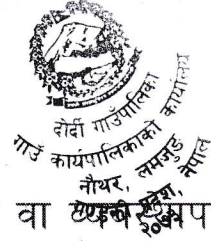 दोर्दी गाउँपालिका
गाउँ कार्यपालिकाको कार्यालय
नौथर, लमजुङ
गण्डकी प्रदेश, नेपाल
वा